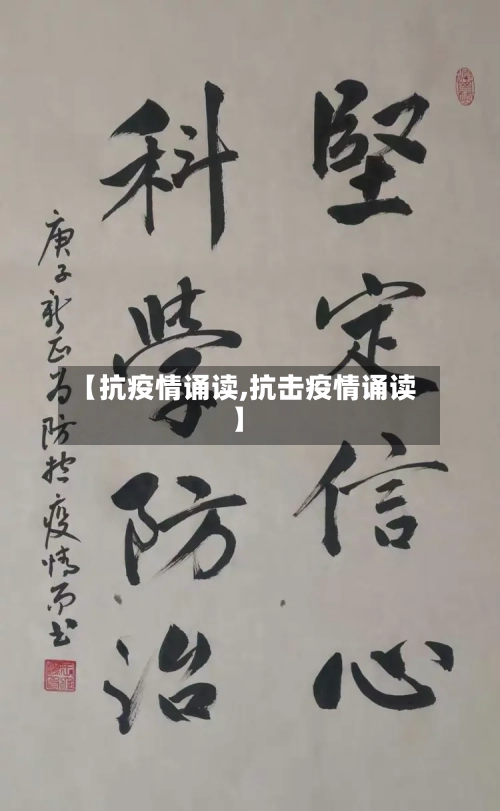 堅定信心
科學防治
庚子新正为防控疫情而书
【抗疫情诵读,抗击疫情诵读
】